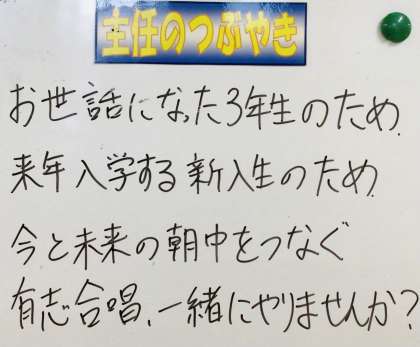 主任のつぶやき
お世話になった3年生のため
来年入学する新入生のため
今と未来の朝中をつなぐ
有志合唱、一緒にやりませんか?